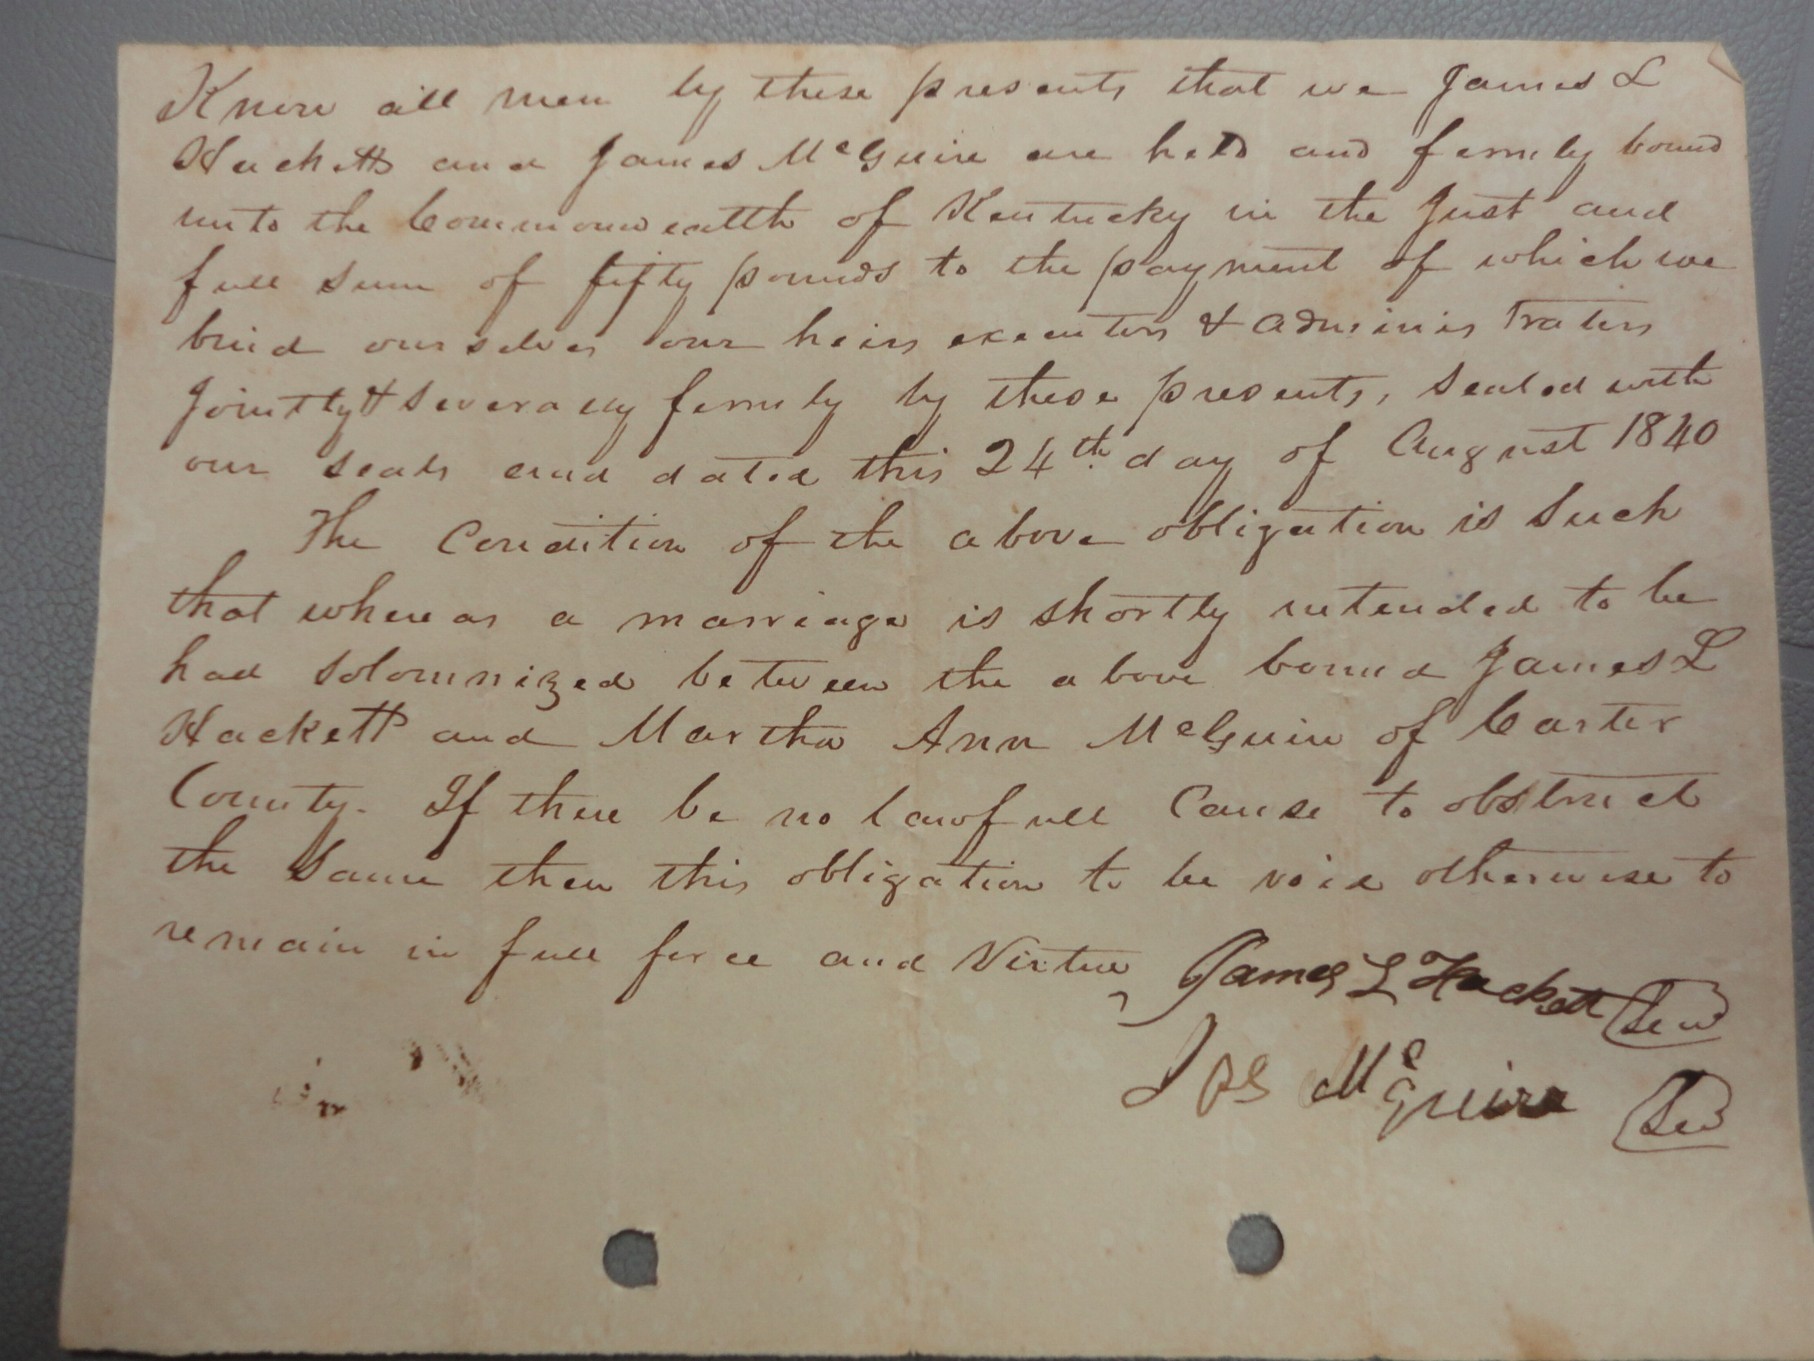 Know all men by these presents that we James L
Hackett and James McGuire are held and fermly bound
unto the Commonwealth of Kentucky in the Just and
full sum of fifty pounds to the payment of which we
bind ourselves our heirs executors & administrators
Jointly & severally fermly by these presents, sealed with
our seals and dated this 24th. day of August 1840
The Condition of the above obligation is such
that whereas a marriage is shortly intended to be
had solomnized between the above bound James L
Hackett and Martha Ann McGuire of Carter
County. If there be no lawfull Cause to obstruct
the same then this obligation to be void otherwise to
remain in full force and Virtue
James L Hackett
McGuire